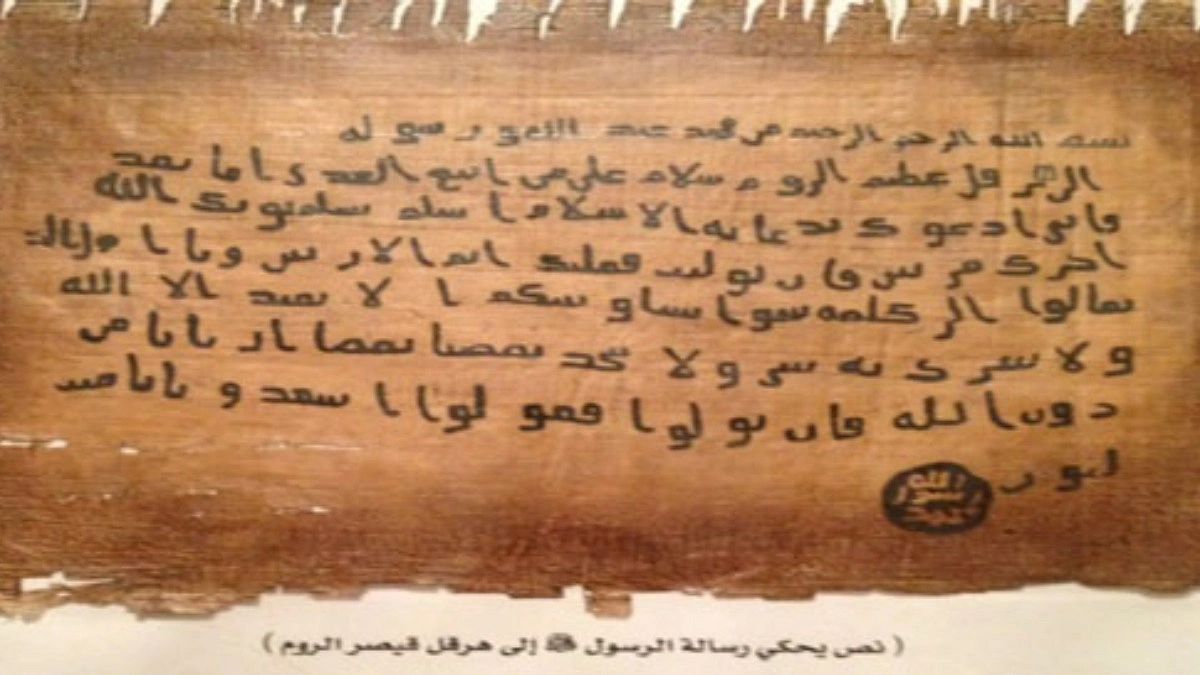 بسم الله الرحمن الرحيم من محمد عبد الله و رسوله
الى هرقل عظيم الروم سلام على من اتبع الهدى اما بعد
فانى ادعوك بدعاية الاسلام اسلم تسلم يوتك الله
اجرك مرتين فان توليت فعليك اثم الاريسين ويا اهل
تعالوا الى كلمة سوا بيننا وبينكم ا لا نعبد الا الله
ولا نشرك به شى ولا يتخذ بعضنا بعضا اربابا من
دون الله فان تولوا فقولوا اشهدو بانا مس
لمون
الله
رسول
محمد
( نص يحكي رسالة الرسول ﷺ إلى هرقل قيصر الروم )